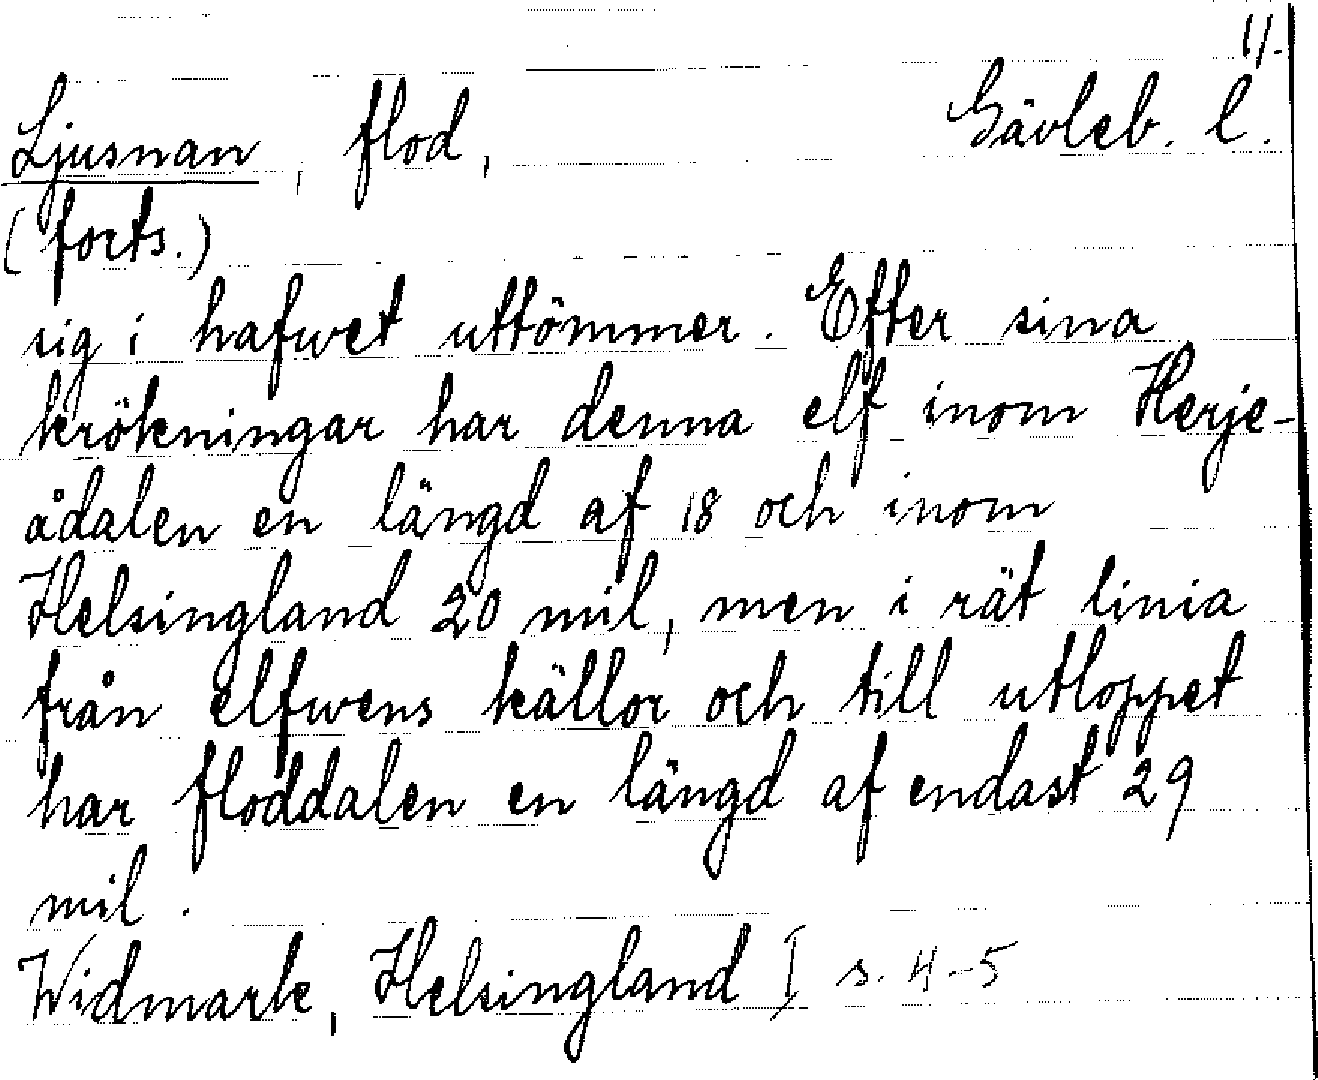 11.
Ljusnan, flod, Gävleb. l.
(forts.)
sig i hafwet uttömmer. Efter sina
krökningar har denna elf inom Herje-
ådalen en längd af 18 och inom
Helsingland 20 mil, men i rät linia
från elfwens källor och till utloppet
har floddalen en längd af endast 29
mil.
Widmark, Helsingland I s. 4-5